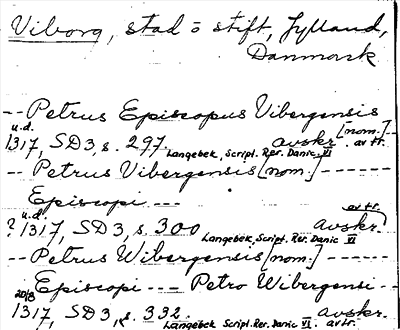 Viborg, stad o stift, Jylland,
Danmark
-- Petrus Episcopus Vibergensis
[nom.] --
u.d.
1317, SD3, s. 297. avskr. av tr.
Langebek, Script. Rer. Danic. VI
-- Petrus Vibergensis [nom.] ------
Episcopi ---
av tr.
u.d.
? 1317, SD3, s. 300 avskr.
Langebek, Script. Rer. Danic VI
-- Petrus Wibergensis [nom.] ------
Episcopi --- Petro Wibergensi --
20/8
1317, SD3, s. 332. avskr.
Langebek Script. Rer. Danic VI. av tr.